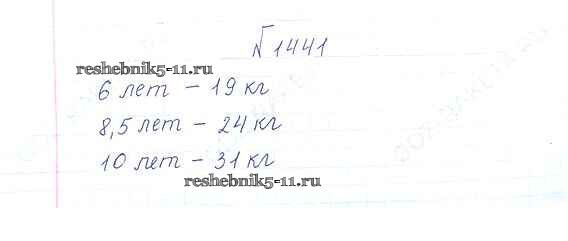 №1441
reshebnik5-11.ru
6 лет – 19 кг
8,5 лет – 24 кг
10 лет – 31 кг
reshebnik5-11.ru